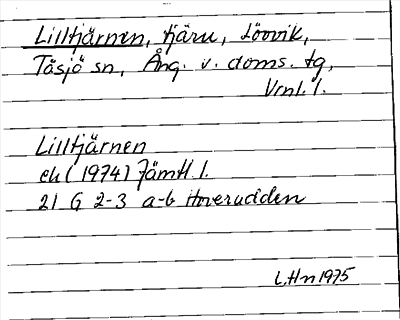 Lilltjärnen, tjärn, Löovik,
Tåsjö sn, Ång. v. doms. tg,
Vrnl. l.
Lilltjärnen
ek (1974) Jämtl. l.
21 G 2-3 a-b Hoverudden
L.Hn 1975